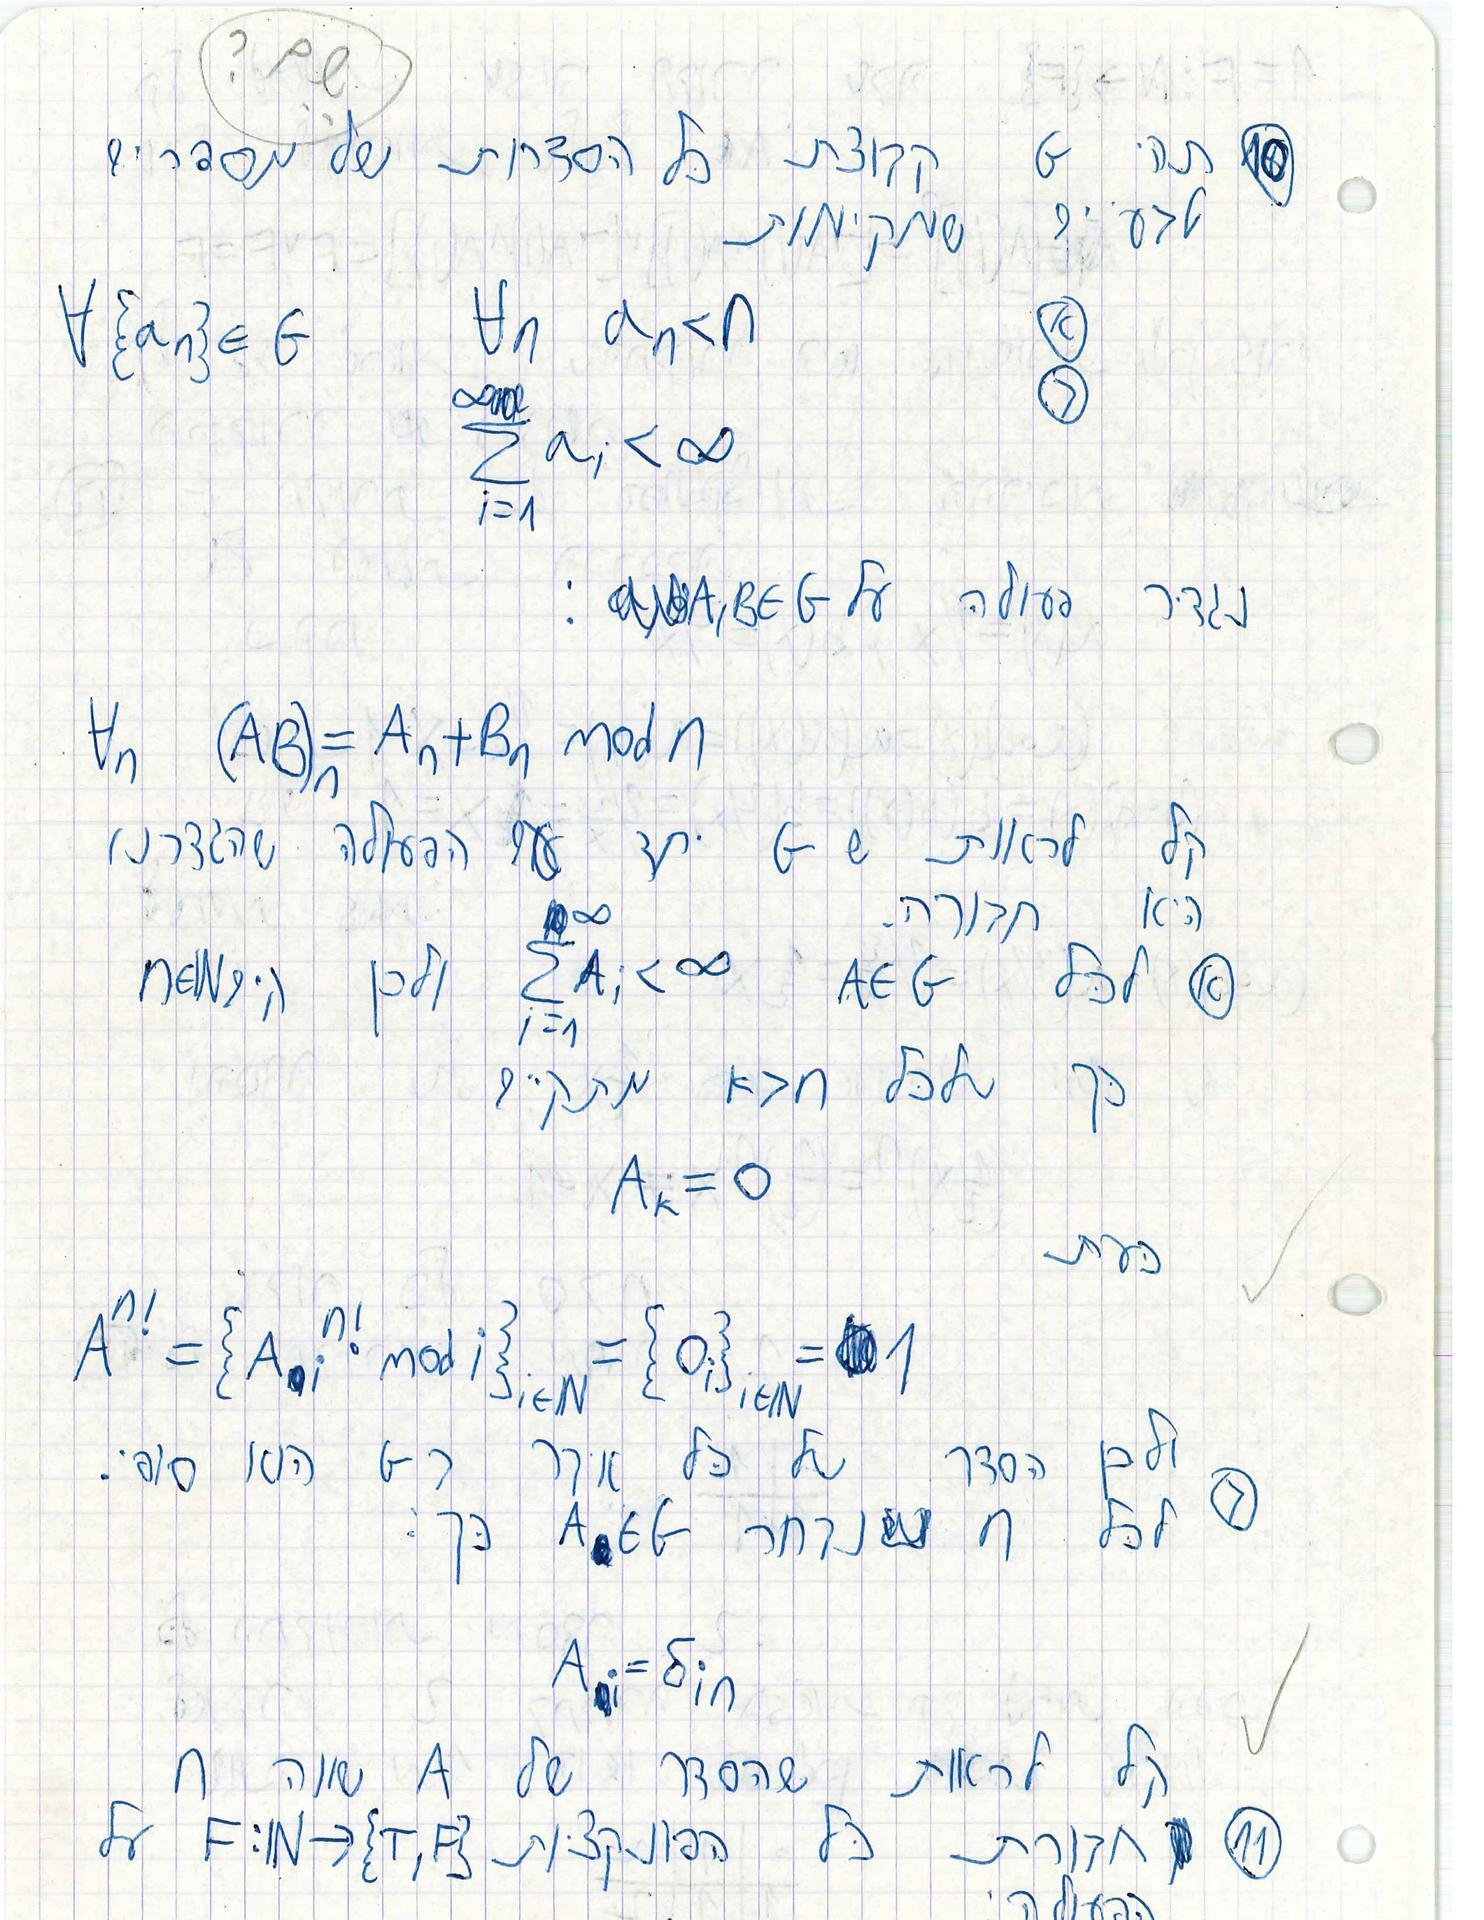 שם?
⑩ תהי G קבוצת כל הסדרות של מספרים
טבעיים שמקימות
א ∀{a_n}∈G ∀n a_n<n
ב
∑_{i=1}^{∞} a_i < ∞
נגדיר פעולה על A,B∈G :
∀n (AB)_n = A_n + B_n mod n
קל לראות ש G יחד עם הפעולה שהגדרנו
היא חבורה.
א לכל A∈G ∑_{i=1}^{∞} A_i < ∞ ולכן קיים n∈ℕ
כך שלכל n<k מתקיים
A_k = 0
כעת
A^{n!} = {A_i^{n!} mod i}_{i∈ℕ} = {0_i}_{i∈ℕ} = 1
ולכן הסדר של כל איבר ב G הוא סופי.
ב לכל n נבחר A∈G כך:
A_i = δ_{in}
קל לראות שהסדר של A שווה n
⑪ חבורת כל הפונקציות F:ℕ→{T,F} על
הפעולה: